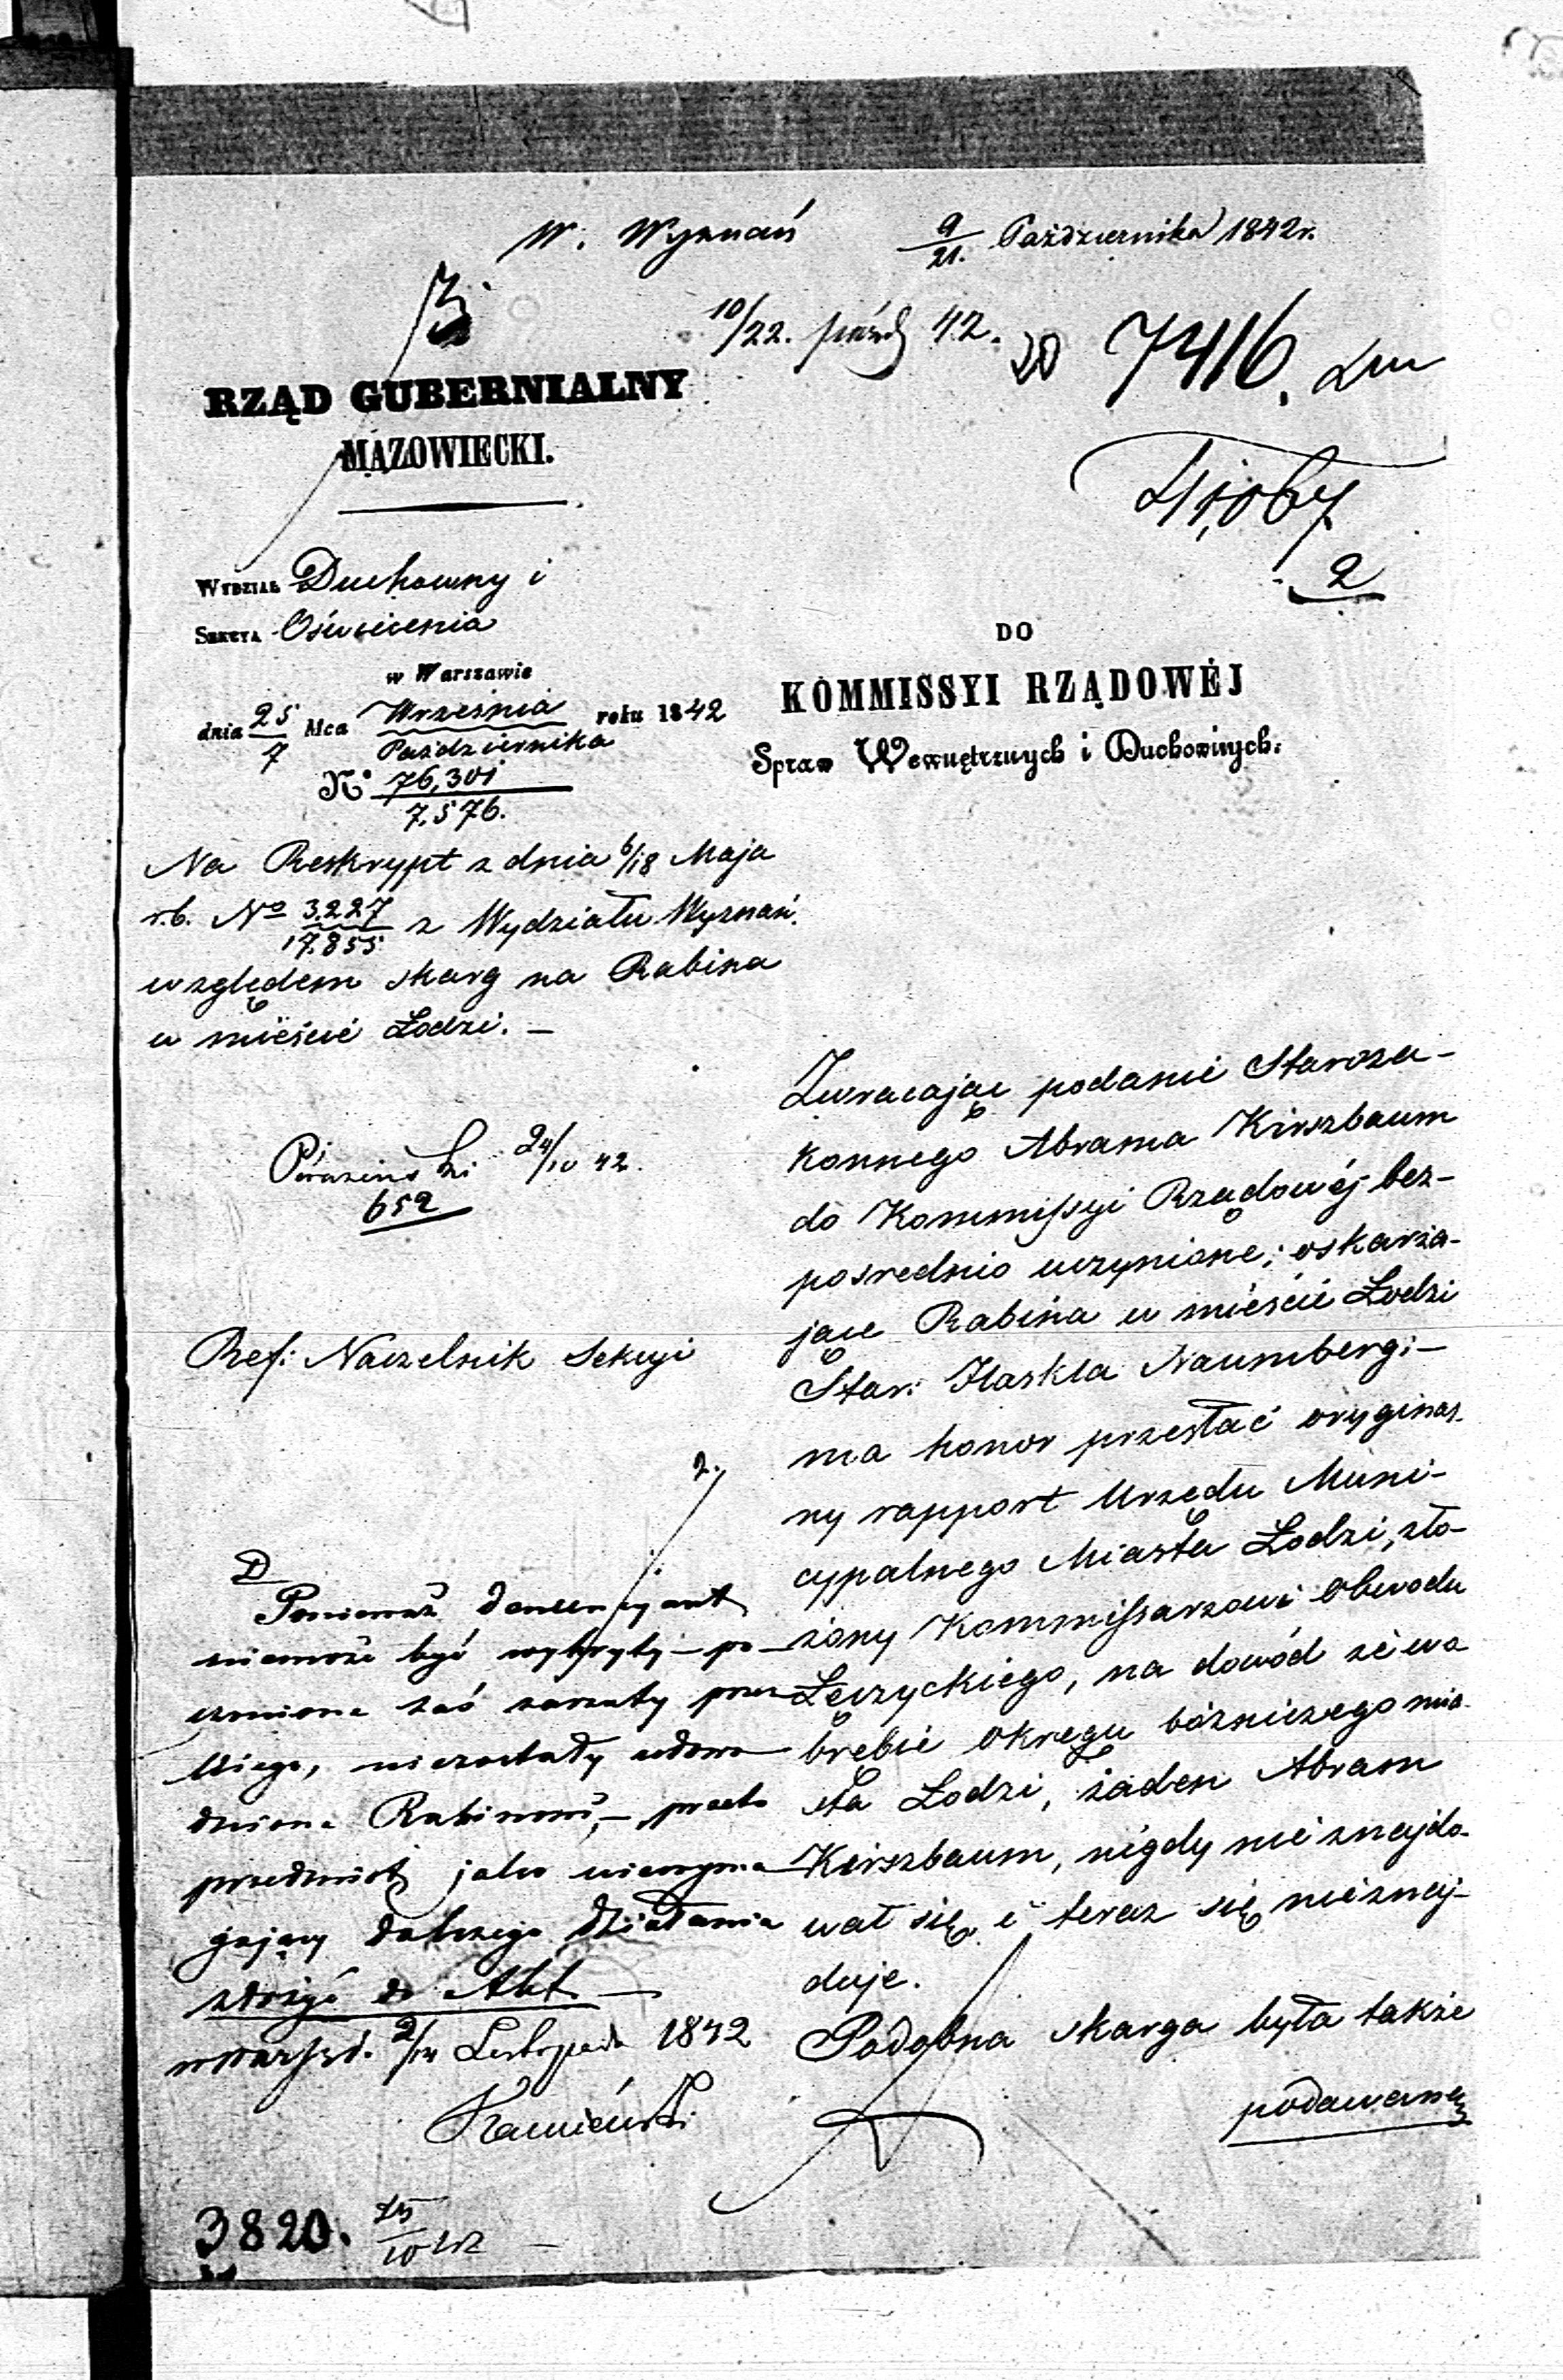 W. Wyznań 9/21. Października 1842 r.
10/22. paźd 42.
7416.
2
RZĄD GUBERNIALNY
MAZOWIECKI.
WYDZIAŁ Duchowny i
SEKCYA Oświecenia
w Warszawie
dnia 25/7 Mca Września/Października roku 1842
No 76,301/7,576.
DO
KOMMISSYI RZĄDOWÉJ
Spraw Wewnętrznych i Duchownych.
Na Reskrypt z dnia 6/18 Maja
r.b. No 3227/17.855 z Wydziału Wyznań.
względem skarg na Rabina
w mieście Łodzi. —
24/10 42.
652
Ref: Naczelnik Sekcyi
Zwracając podanie Staroza-
konnego Abrama Kirszbaum
do Kommissyi Rządowéj bez-
pośrednio uczynione; oskarża-
jące Rabina w mieście Łodzi
Star: Haskla Naumberg; —
ma honor przesłać oryginal-
ny rapport Urzędu Muni-
cypalnego Miasta Łodzi, zło-
żony Kommissarzowi Obwodu
Łęczyckiego, na dowód że w o-
brębie Okręgu bóżniczego mia-
sta Łodzi, żaden Abram
Kirszbaum, nigdy nie znajdo-
wał się i teraz się nieznaj-
duje.
Podobna skarga była także
podawaną
2.
D
Ponieważ denuncyant
niemoże być wykryty — po
czynione zaś zarzuty przez
niego, niezostały udowo
dnione Rabinowi, — przeto
przedmiot jako niewyma
gający dalszego działania
złożyć do Akt —
2/14 Listopada 1842
Kamieński
3820. 25/10 42